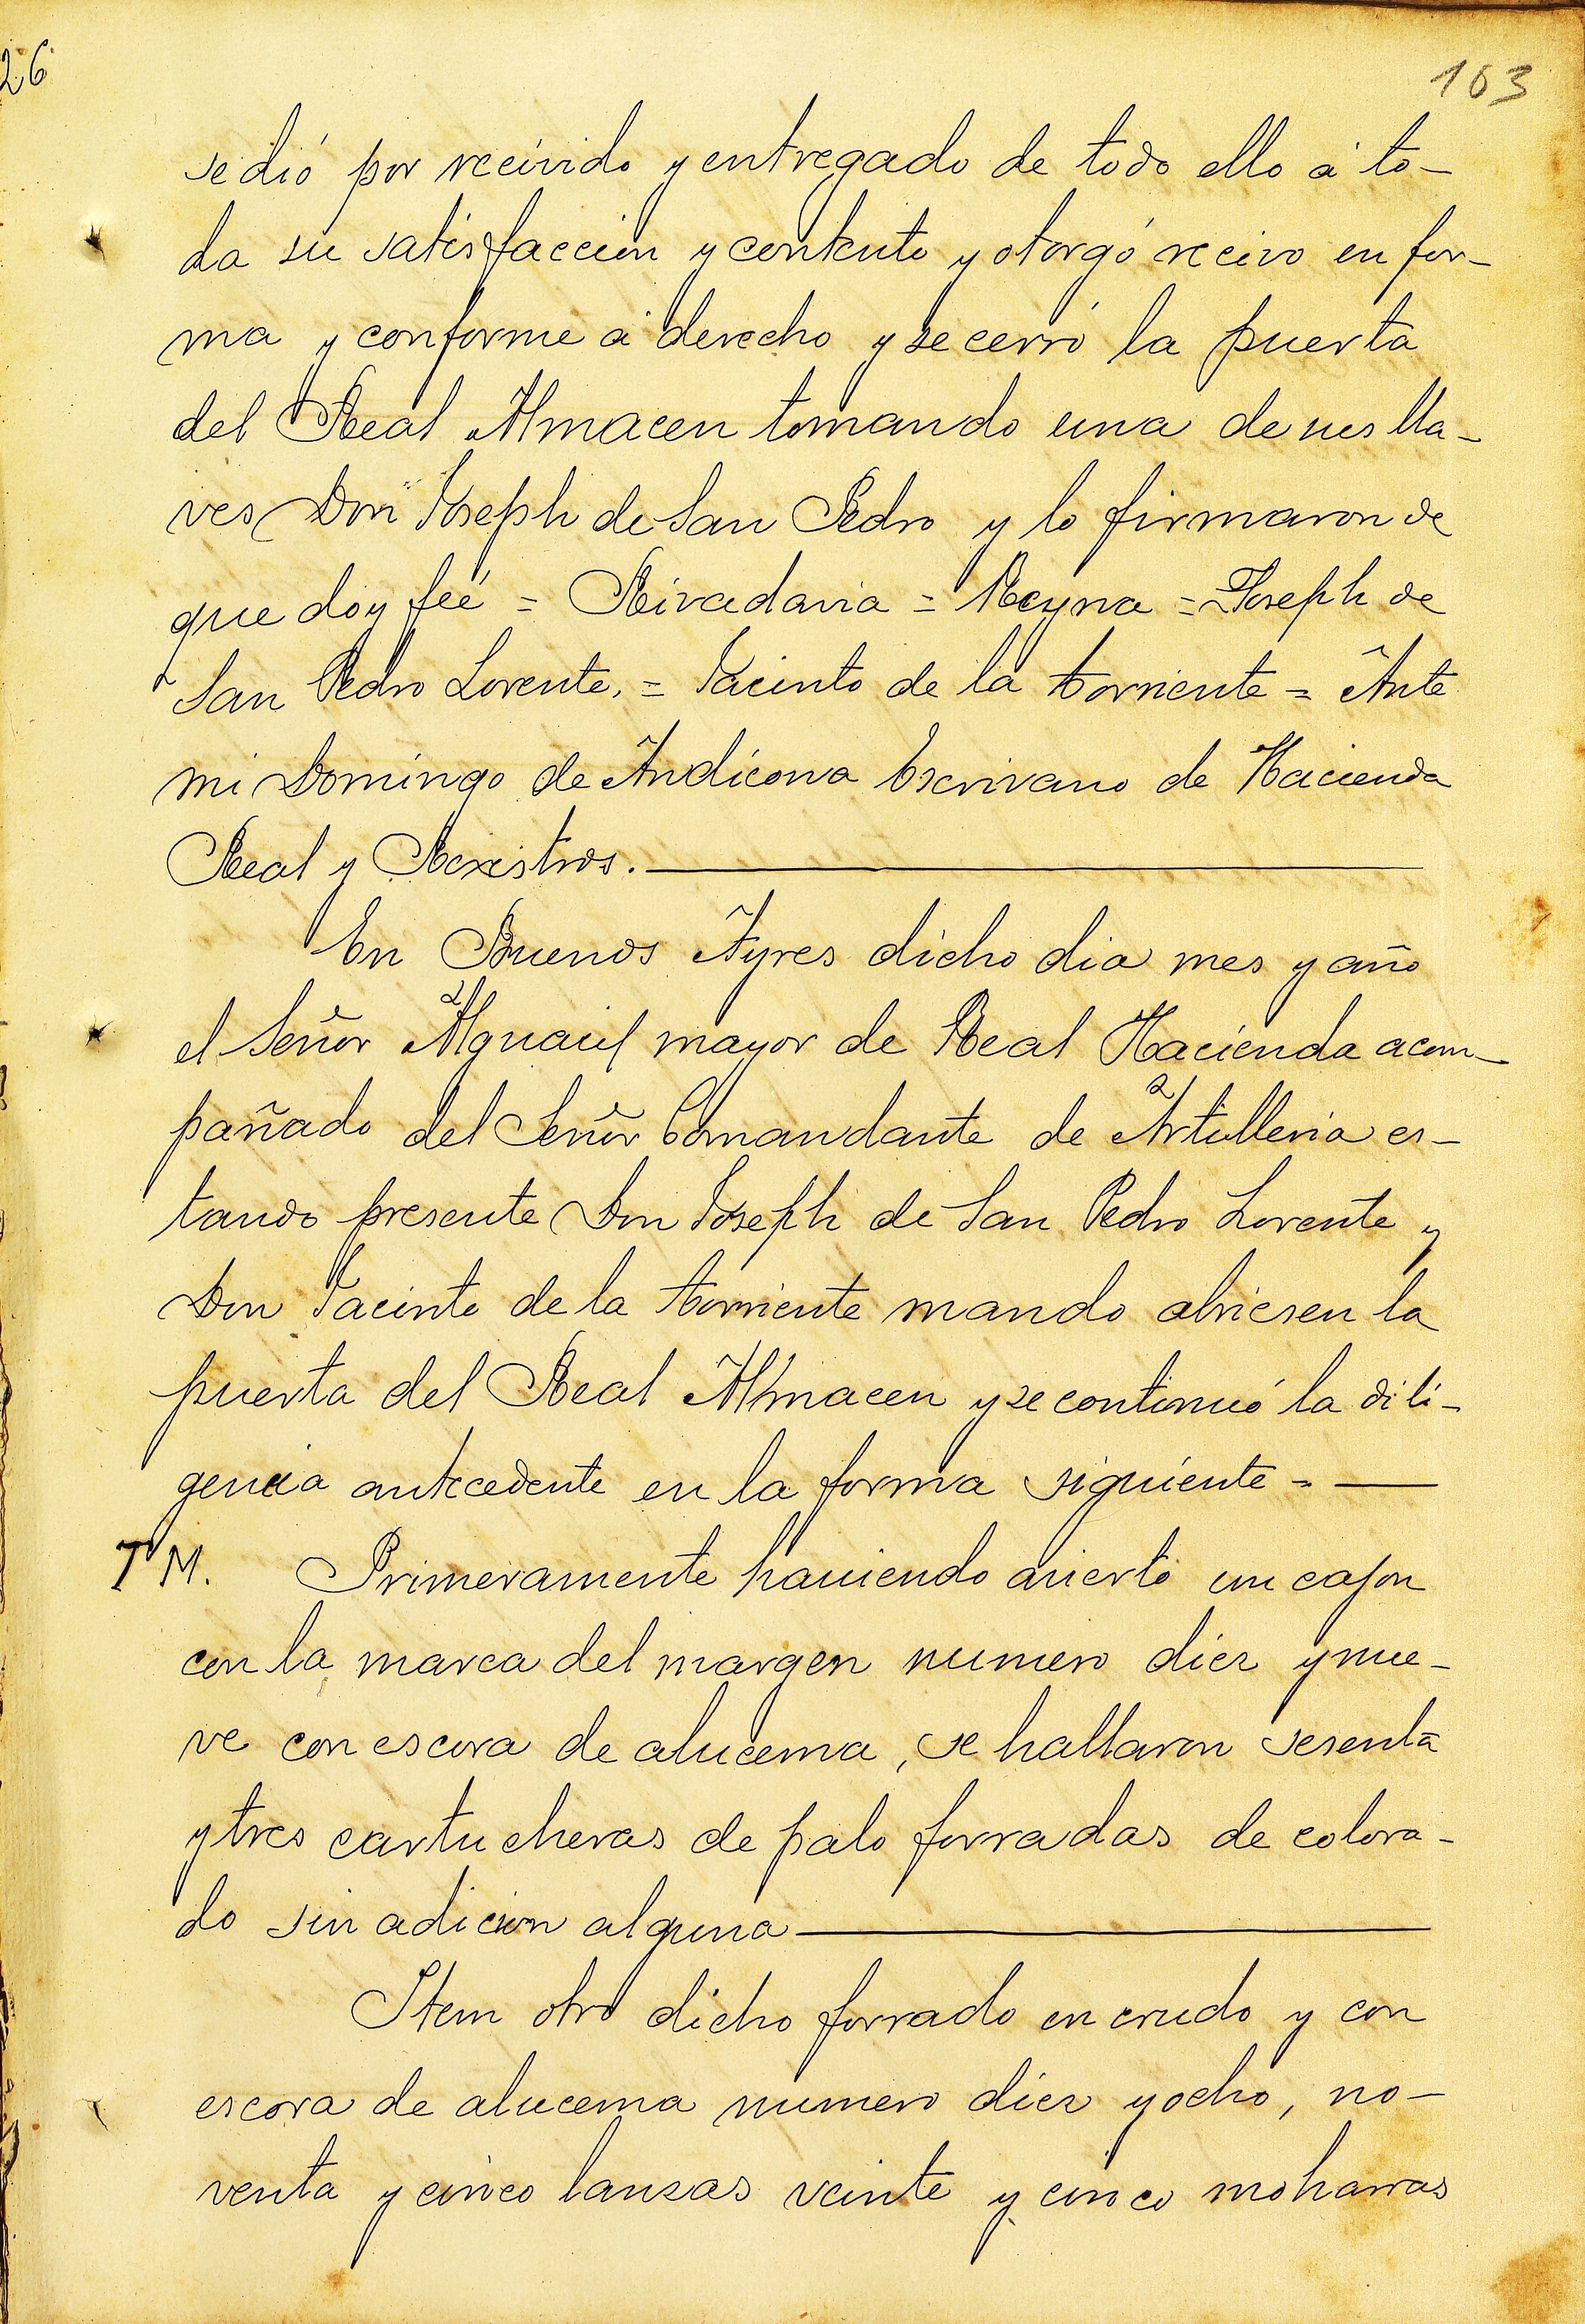 26
103
se dió por recivido y entregado de todo ello á to-
da su satisfaccion y contento y otorgó recivo en for-
ma y conforme á derecho y se cerró la puerta
del Real Almacen tomando una de sus lla-
ves Don Joseph de San Pedro y lo firmaron de
que doy feé = Rivadavia = Reyna = Joseph de
San Pedro Lorente. = Jacinto de la torriente = Ante
mi Domingo de Andicona Escrivano de Hacienda
Real y Rexistros.
En Buenos Ayres dicho dia mes y año
el Señor Alguacil mayor de Real Hacienda acom-
pañado del Señor Comandante de Artilleria es-
tando presente Don Joseph de San Pedro Lorente y
Don Jacinto de la torriente mando abriesen la
puerta del Real Almacen y se continuó la dili-
gencia antecedente en la forma siguiente =
T M. Primeramente haviendo avierto un cajon
con la marca del margen numero diez y nue-
ve con escova de alucema, se hallaron sesenta
y tres cartucheras de palo forradas de colora-
do sin adicion alguna
Item otro dicho forrado en crudo y con
escova de alucema numero diez y ocho, no-
venta y cinco lansas veinte y cinco moharras